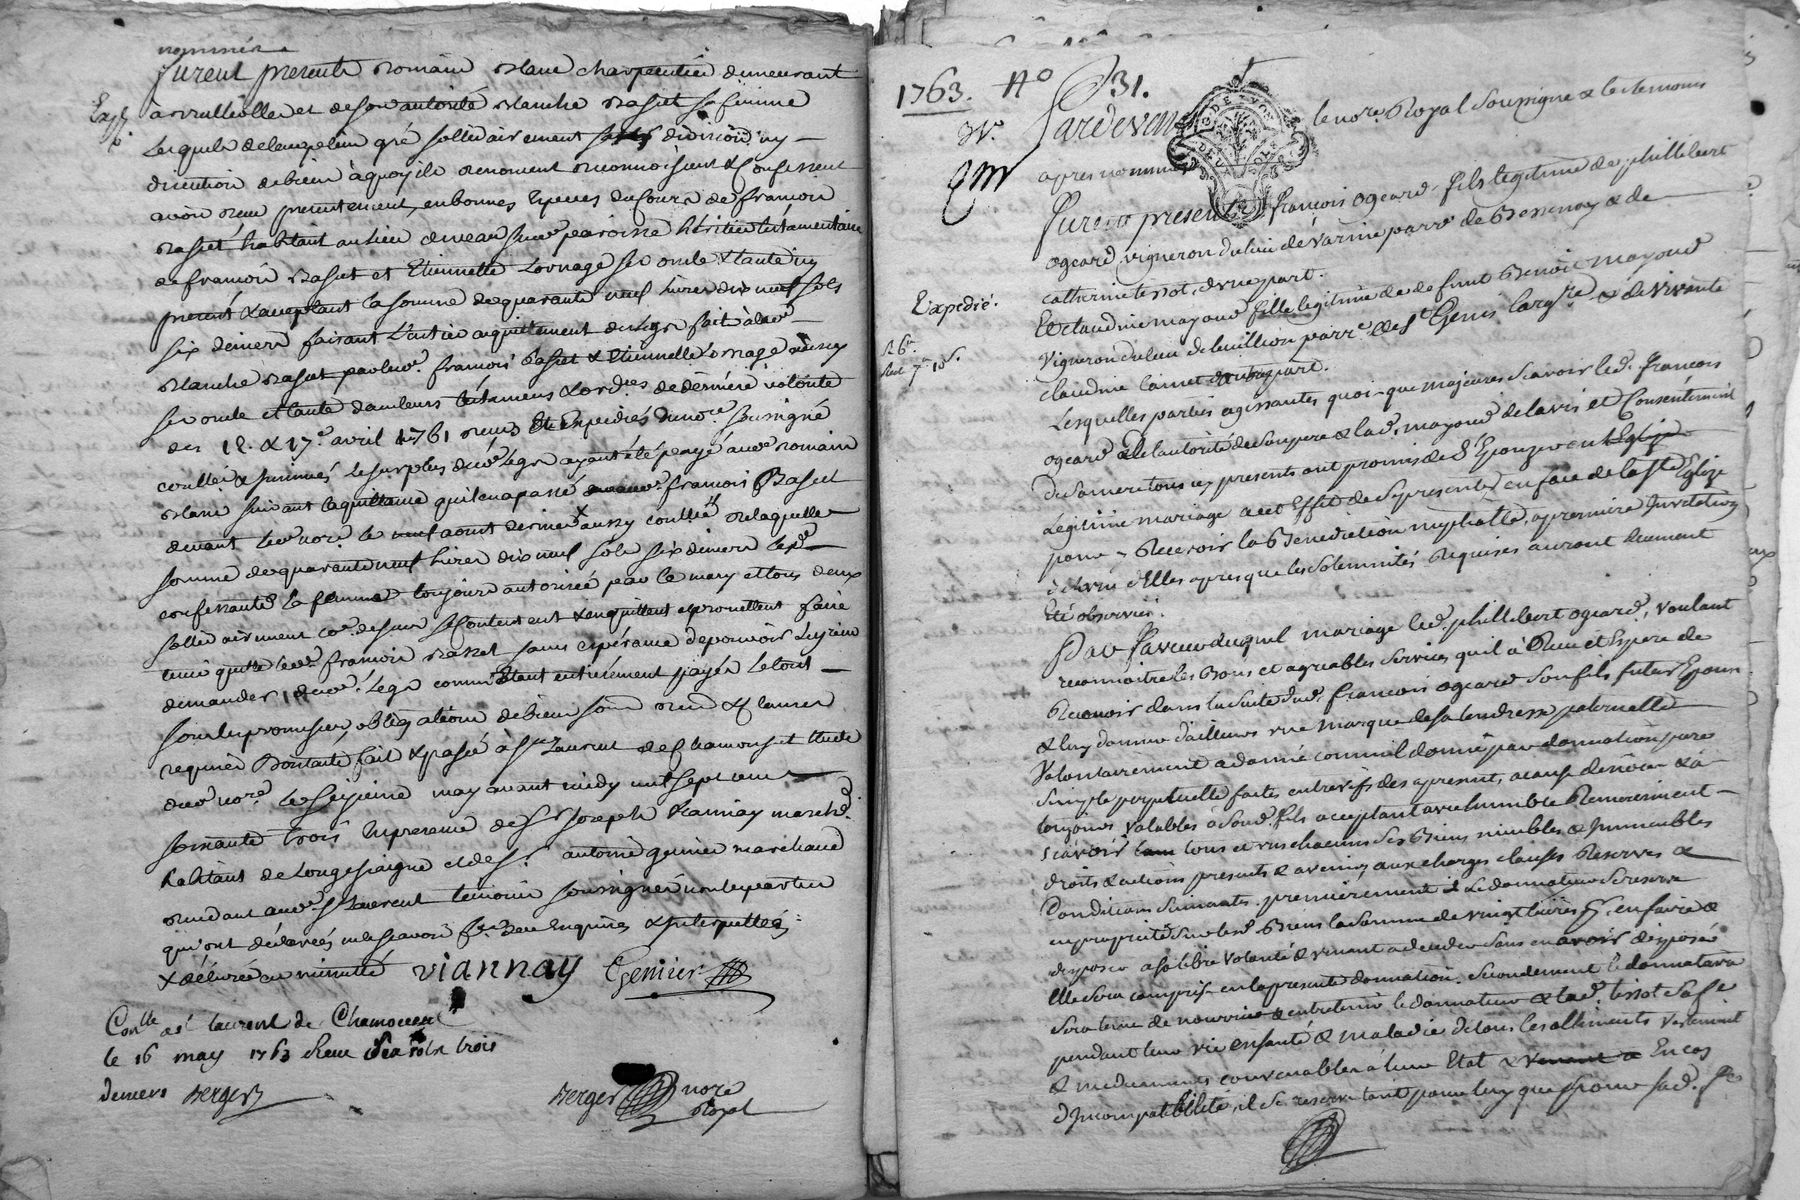 nommés
furent presents Romain Blanc charpentier demeurant
Exp.
à Brullioles et de son autorité Blanche Basset sa femme
Lesquels de leur plein gré sollidairement sans division ny
discution de biens à quoy ils renoncent reconnoissent & Confessent
avoir reçu presentement, en bonnes Especes du Cours de francois
Basset habitant au lieu de paroisse héritier testamentaire
de francois Basset et Etiennette Lornage ses oncle & tante icy
present & acceptant la somme de quarante neuf livres dix neuf sols
six deniers faisant l'entier acquittement du legs fait à lad.e
Blanche Basset par led.s francois Basset & Etiennette Lornage
ses oncle et tante dans leurs testamens & ord.res de derniere volonté
des & 17.e avril 1761 reçus Et Expediés du no.re soussigné
controllés & insinués Le surplus dud. Legs ayant été payé aud. Romain
Blanc suivant la quittance qu'il en a passé francois Basset
devant led. no.re le neuf aout dernier aussy controllée de laquelle
somme de quarante neuf livres dix neuf sols six deniers les d.
confessants la femme toujours autorisée par le mary et tous deux
sollidairement co.e dessus se contentent & en quittent & promettent faire
tenir quitte led. francois Basset sans espérance de pouvoir Luy rien
demander dud. Legs comme Etant entièrement payés le tout
sous les promesses, obligations de biens soumi ren & clauses
requises Dont acte fait & passé à St Laurent de Chamousset Etude
dud no.re le seizieme may avant midy mil sept cens
soixante trois En presence de Sr Joseph Viannay march.d
habitant de Longessaigne et de S.r antoine genier marchand
residant aud. St Laurent temoins soussignés non les parties
qui ont déclarées ne sçavoir f.re De ce Enquises & interpellées
& délivré en minutte viannay Genier
Con.lle a St laurent de Chamousset
le 16 may 1763 Reçu Six sols trois
deniers Berger
Berger no.re
Royal
1763. N.o 31.
Pardevant le no.re Royal soussigné & les temoins
apres nommés
Furent presents françois ogeard fils legitime de phillibert
ogeard vigneron du lieu de Varine parr.e de Bessenay & de
catherine tissot, d'une part.
Expedié.
Et Claudine mayoud fille legitime de defunt Benoit mayoud
Vigneron du lieu de parr.e de St Genis l'arg.re & de vivante
claudine d'autre part.
Lesquelles parties agissantes quoi-que majeures sçavoir led. françois
ogeard de l'autorité de son pere & lad. mayoud de l'avis et Consentement
de sa mere tous icy presents ont promis de s'Epouzer en
Legitime mariage a cet Effet de se presenter en face de la Ste Eglize
pour y Recevoir la Benediction nuptialle, a premiere Invitation
de l'un d'Elles apres que les solemnités Requises auront duement
Eté observées.
Par faveur duquel mariage led. phillibert ogeard, voulant
reconnoitre les Bons et agreables services qu'il à Reçu et Espere de
Recevoir dans la suite dud. françois ogeard son fils futur Epoux
& luy donner d'ailleurs une marque de sa tendresse paternelle
Volontairement a donné comme il donne par donnation pure
simple perpetuelle faite entrevifs des apresent, acause de nôces & à
toujours Valables a sond. fils acceptant avec humble Remerciement
sçavoir tous et uns chacuns ses Biens meubles & Immeubles
droits & actions presents & avenir, aux charges clauses Reserves &
Conditions suivants. premierement Le donnateur se reserve
en proprieté sur lesd. Biens la somme de vingt livres p.r en faire &
disposer a sa libre Volonté & venant a deceder sans en avoir disposé
Elle sera comprise en la presente donnation. Secondement le donnataire
sera tenu de nourrir & entretenir le donnateur & lad. tissot sa f.e
pendant leur vie en santé & maladie de tous les alliments Vestement
& medicaments convenables à leur Etat & En cas
d'Incompatibilité, il se reserve tant pour luy que pour sad. f.e